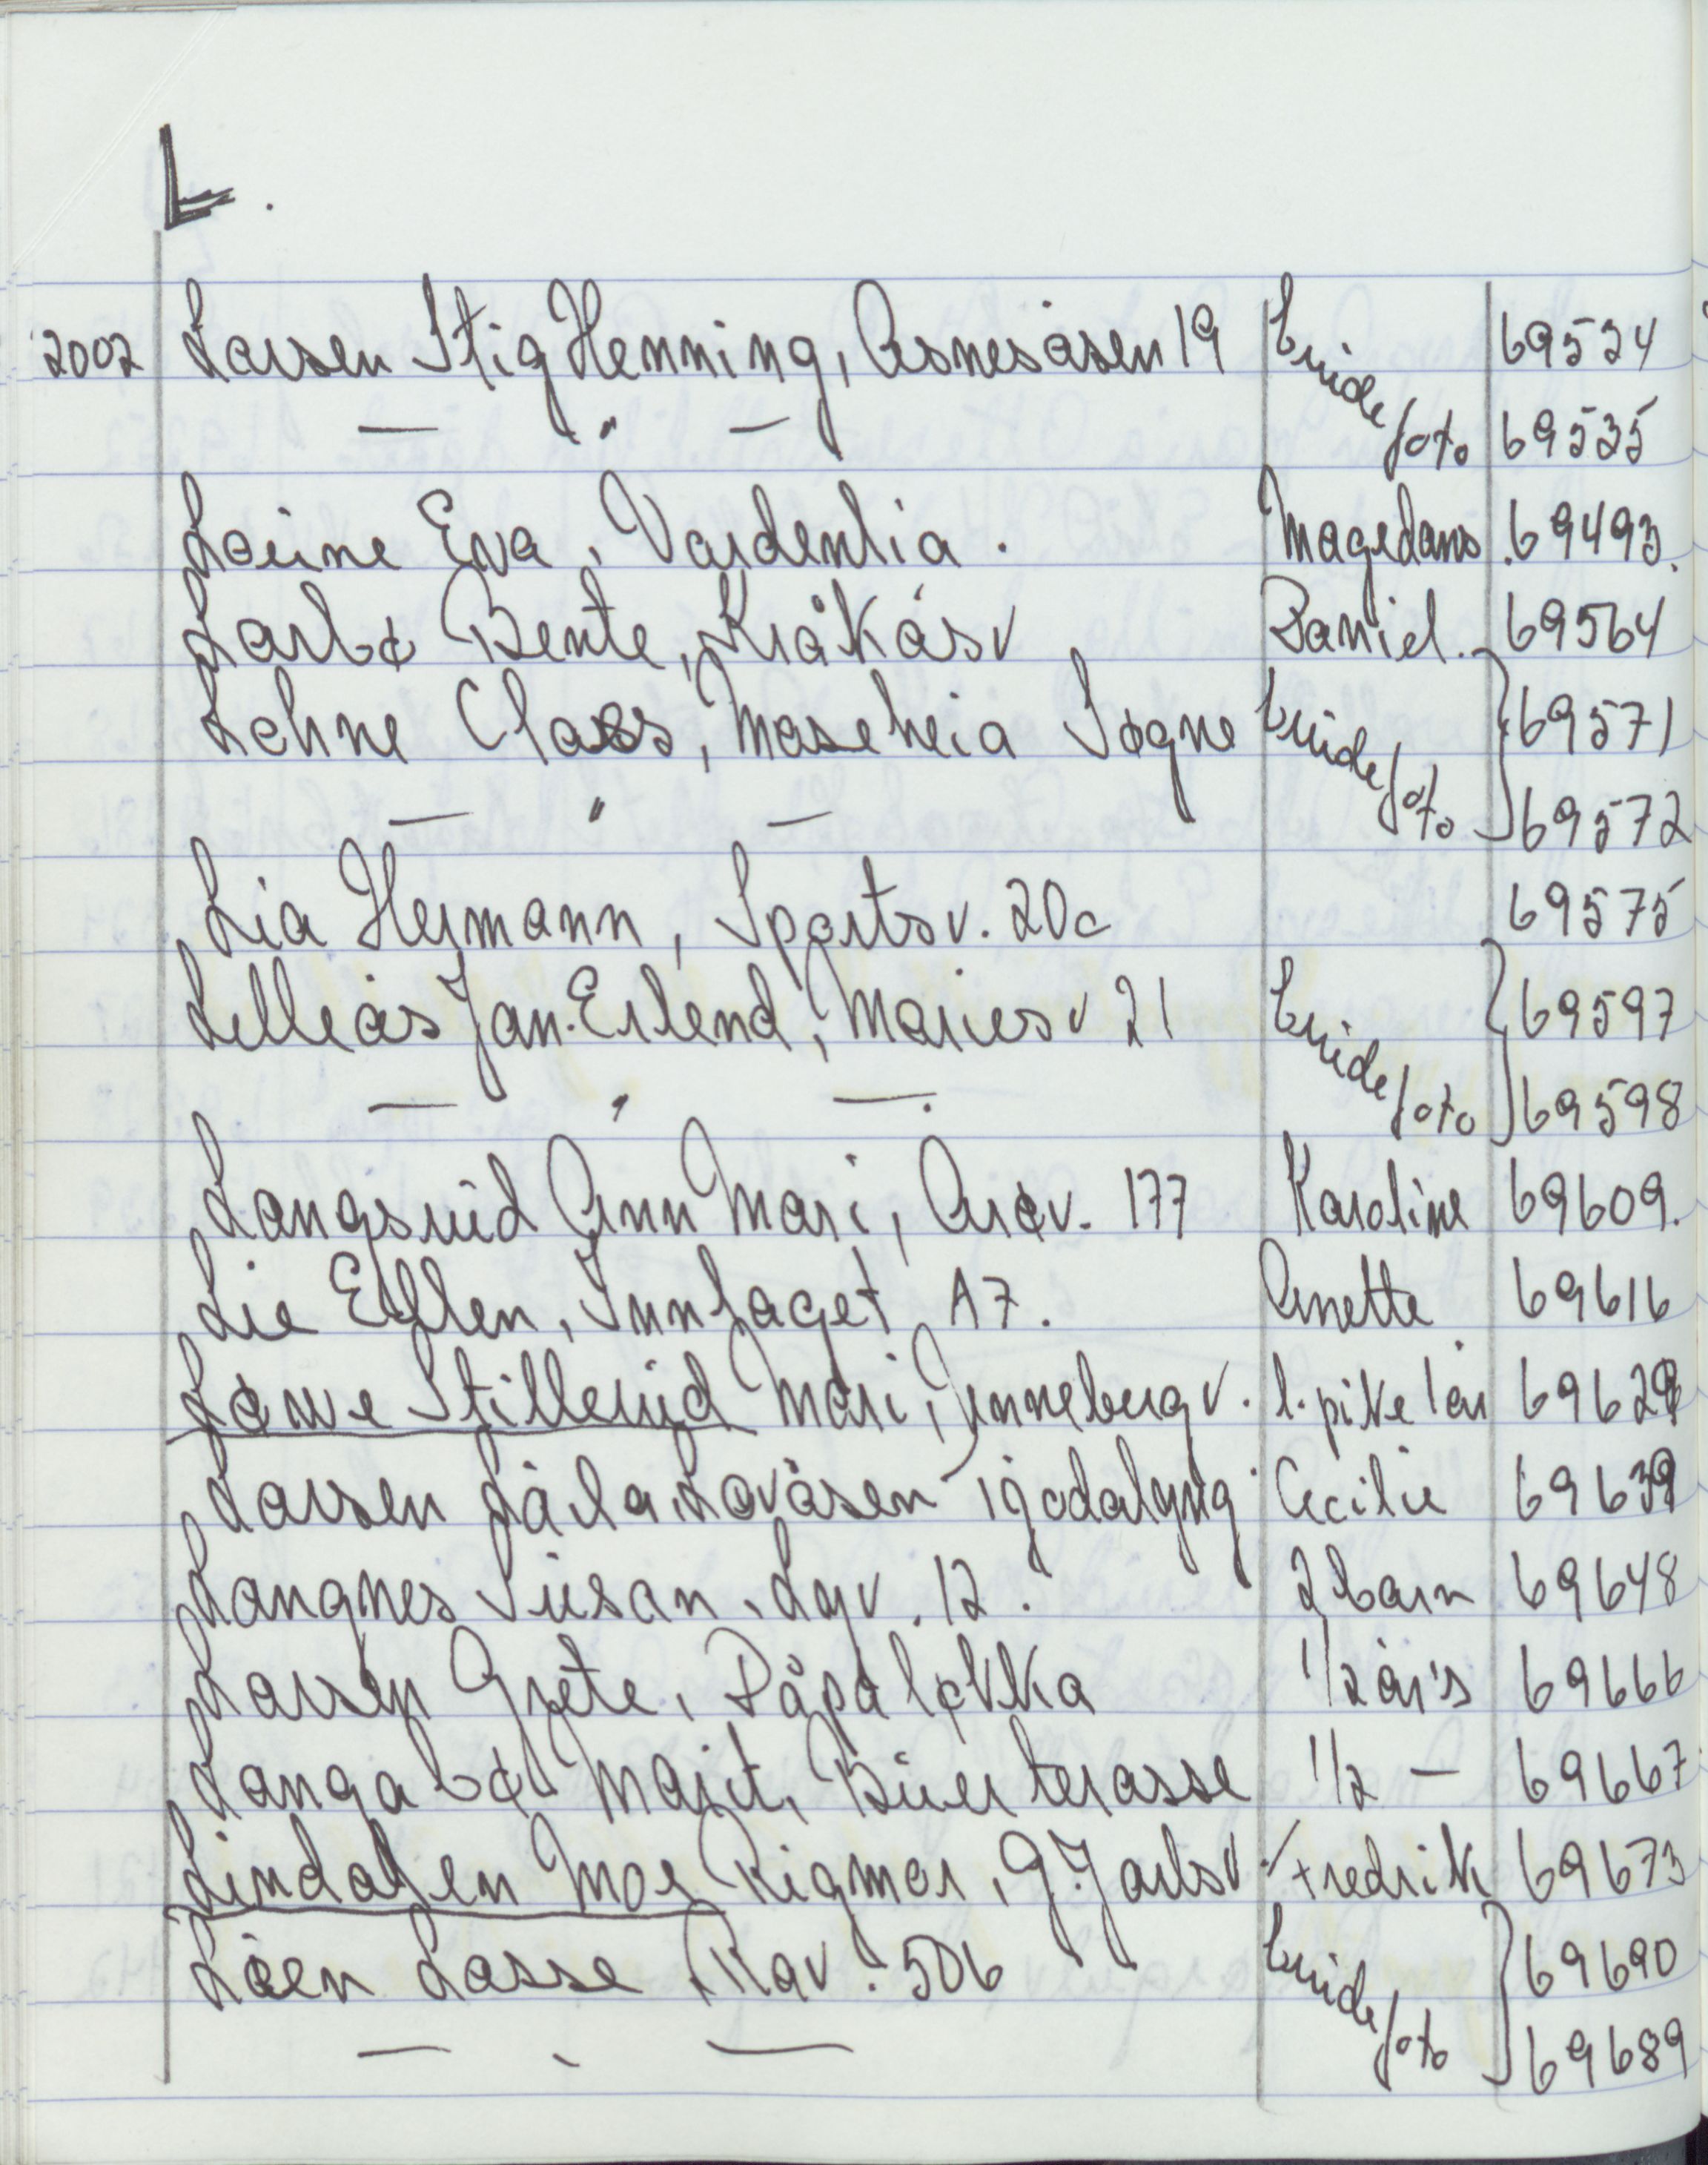 L.
2002 Larsen Stig Henning, Asnesåsen 19 brudefoto 69534
— " — 69535
Laune Eva, Vardenlia. Magedans 69493.
Larbø Bente, Kråkåsv Daniel. 69564
Lohne Claes, Moseheia Søgne brudefoto 69571
— " — 69572
Lia Hermann, Sportsv. 20c 69575
Lilleås Jan-Erlend, Mariesv 21 brudefoto 69597
— " — 69598
Langsrud Ann Mari, Arøv. 177 Karoline 69609.
Lie Ellen, Tunlaget A7. Anette 69616
Løwe Stillerud Mari, Tunnebergv. l. pike 1 år
Larsen Låila, Løvåsen Cecilie 69639
Langnes Susan, Lyv. 12. 2 barn 69648
Larsen Grete, Dåpaløkka 1/2 år's 69666
Langabø Marit, Buer terasse 1/2 — 69667
Lindalen Moe Rigmor, G. Jarlsv. Fredrik 69673
Løen Lasse, Rav. 506 brudefoto 69690
— " — 69689